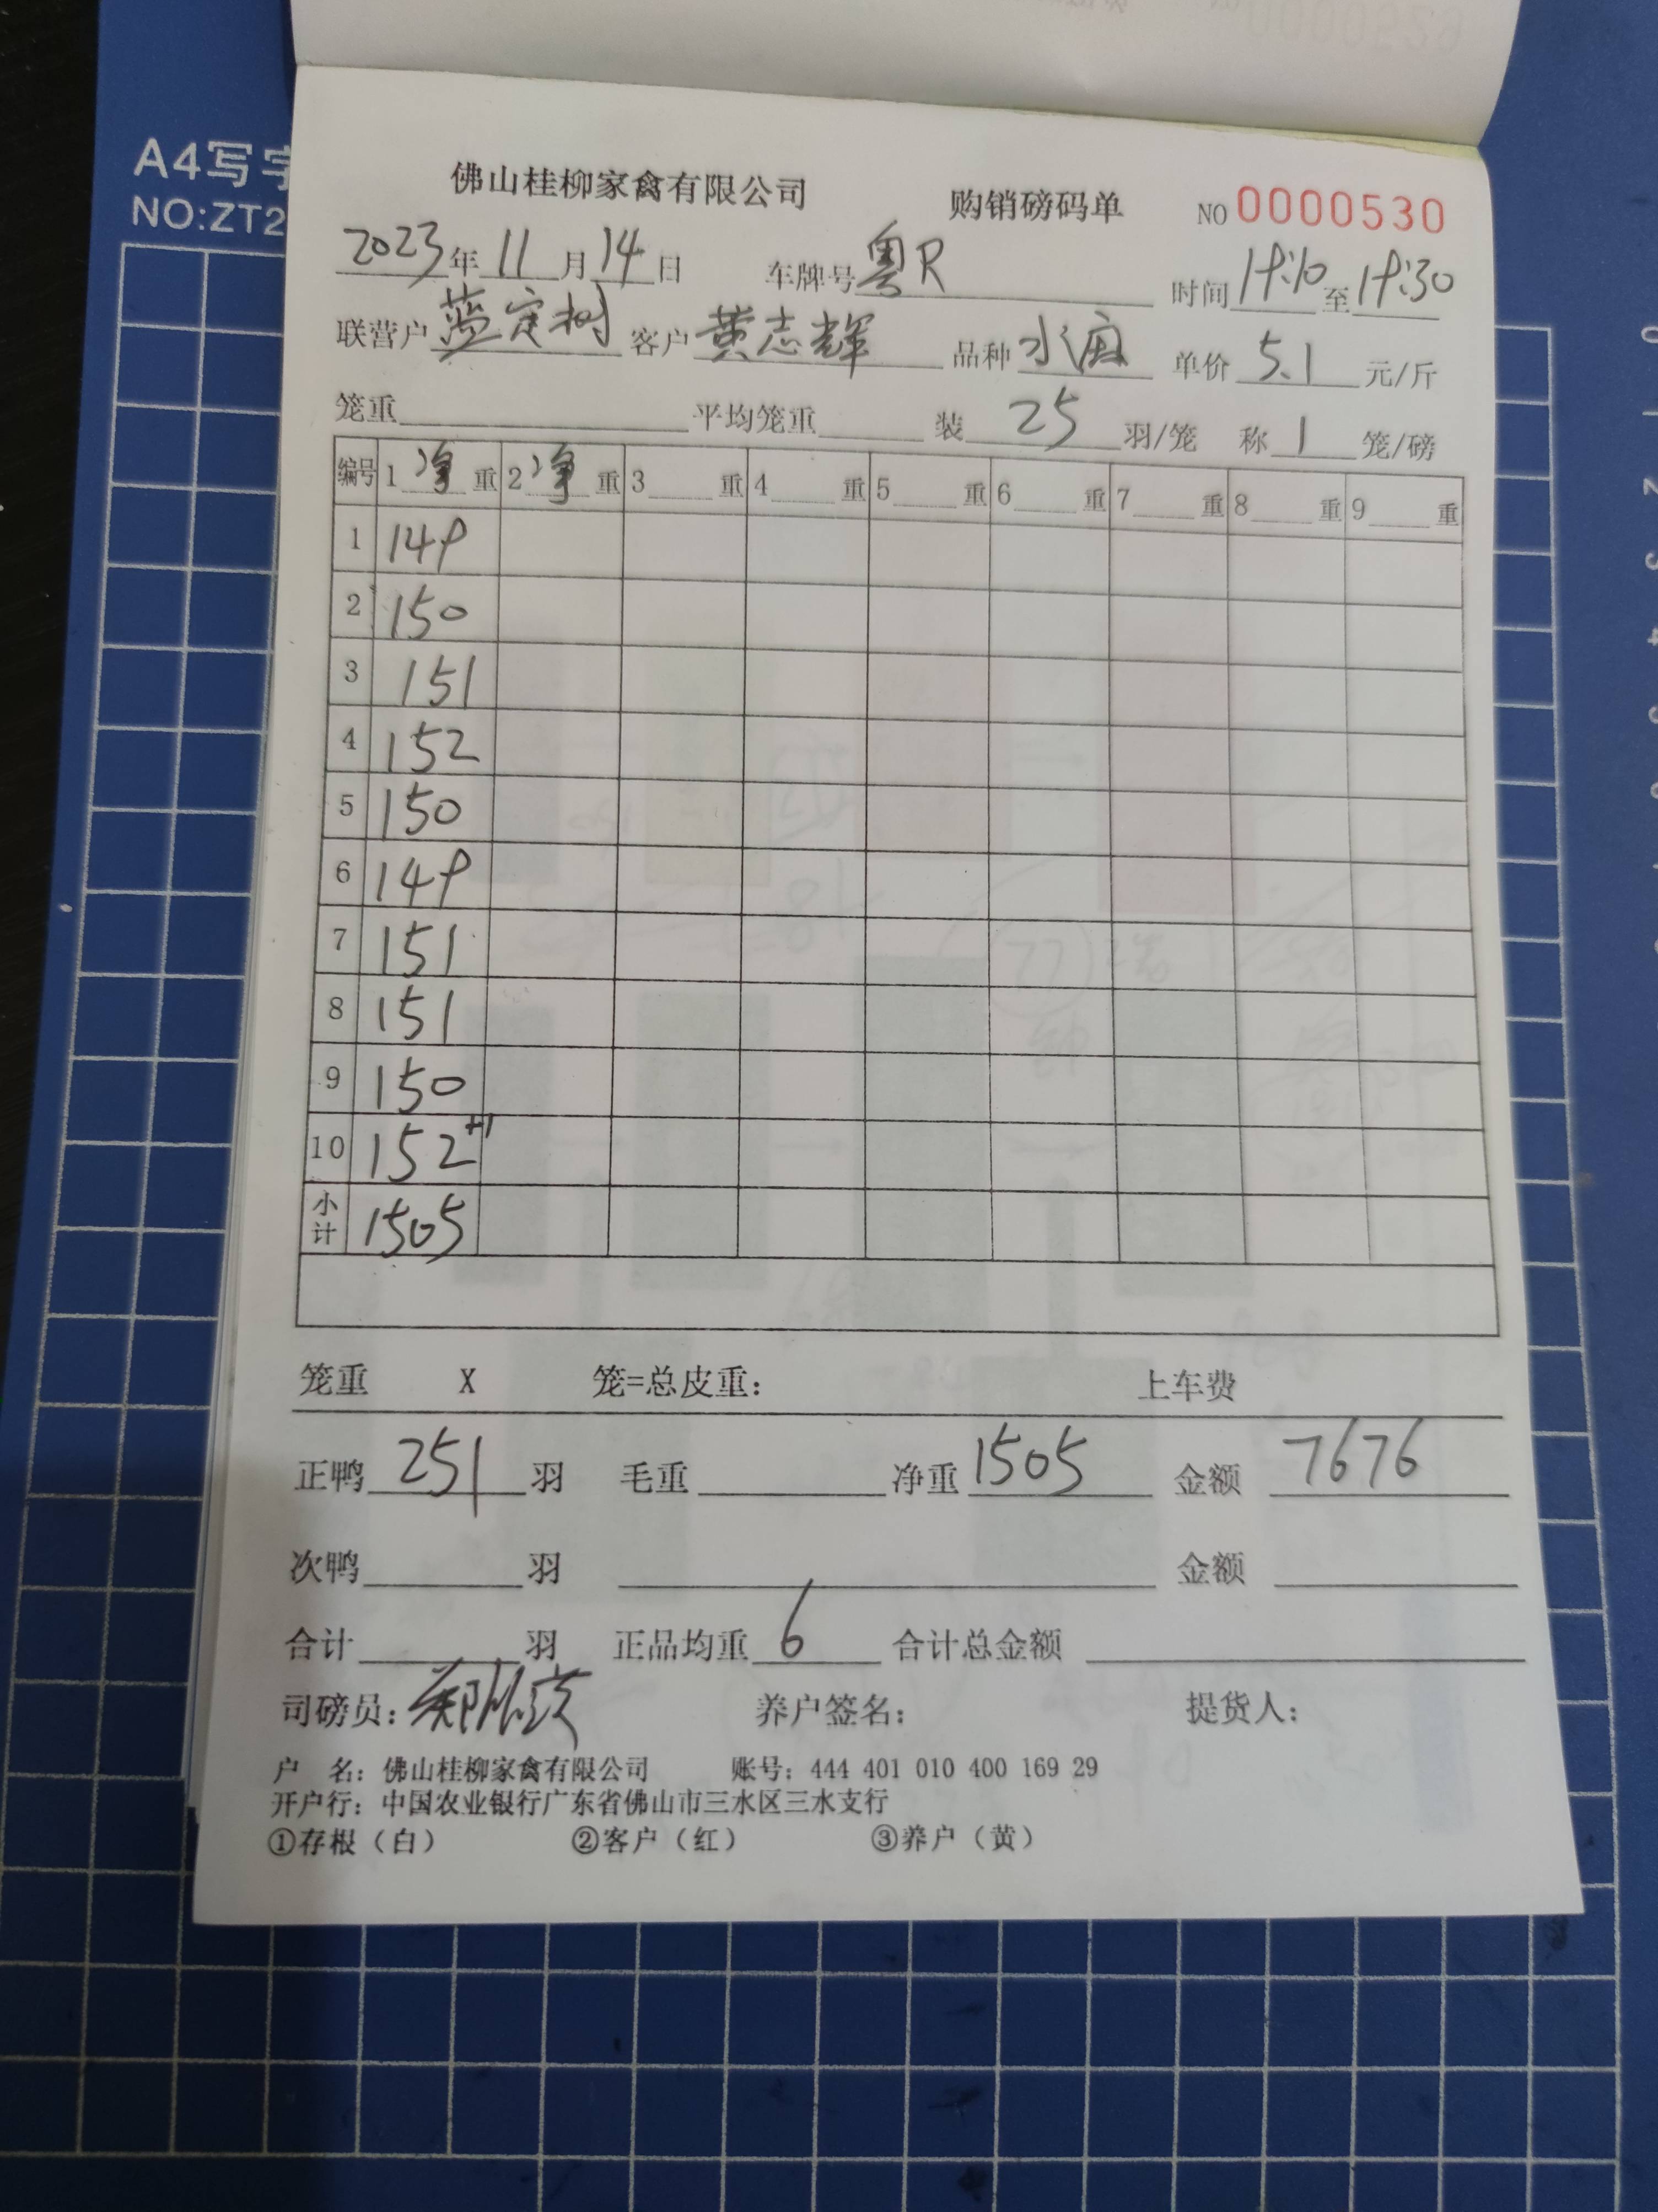 A4写字
NO:ZT2
佛山桂柳家禽有限公司 购销磅码单 NO 0000530
2023年11月14日 车牌号 粤R 时间 19:10 至 19:30
联营户 蓝定树 客户 黄志辉 品种 水麻 单价 5.1 元/斤
笼重 平均笼重 装 25 羽/笼 称 1 笼/磅
编号 1 净 重 2 净 重 3 重 4 重 5 重 6 重 7 重 8 重 9 重
1 149
2 150
3 151
4 152
5 150
6 149
7 151
8 151
9 150
10 152+1
小计 1505
笼重 X 笼=总皮重: 上车费
正鸭 251 羽 毛重 净重 1505 金额 7676
次鸭 羽 金额
合计 羽 正品均重 6 合计总金额
司磅员: 养户签名: 提货人:
户 名: 佛山桂柳家禽有限公司 账号: 444 401 010 400 169 29
开户行: 中国农业银行广东省佛山市三水区三水支行
①存根（白） ②客户（红） ③养户（黄）